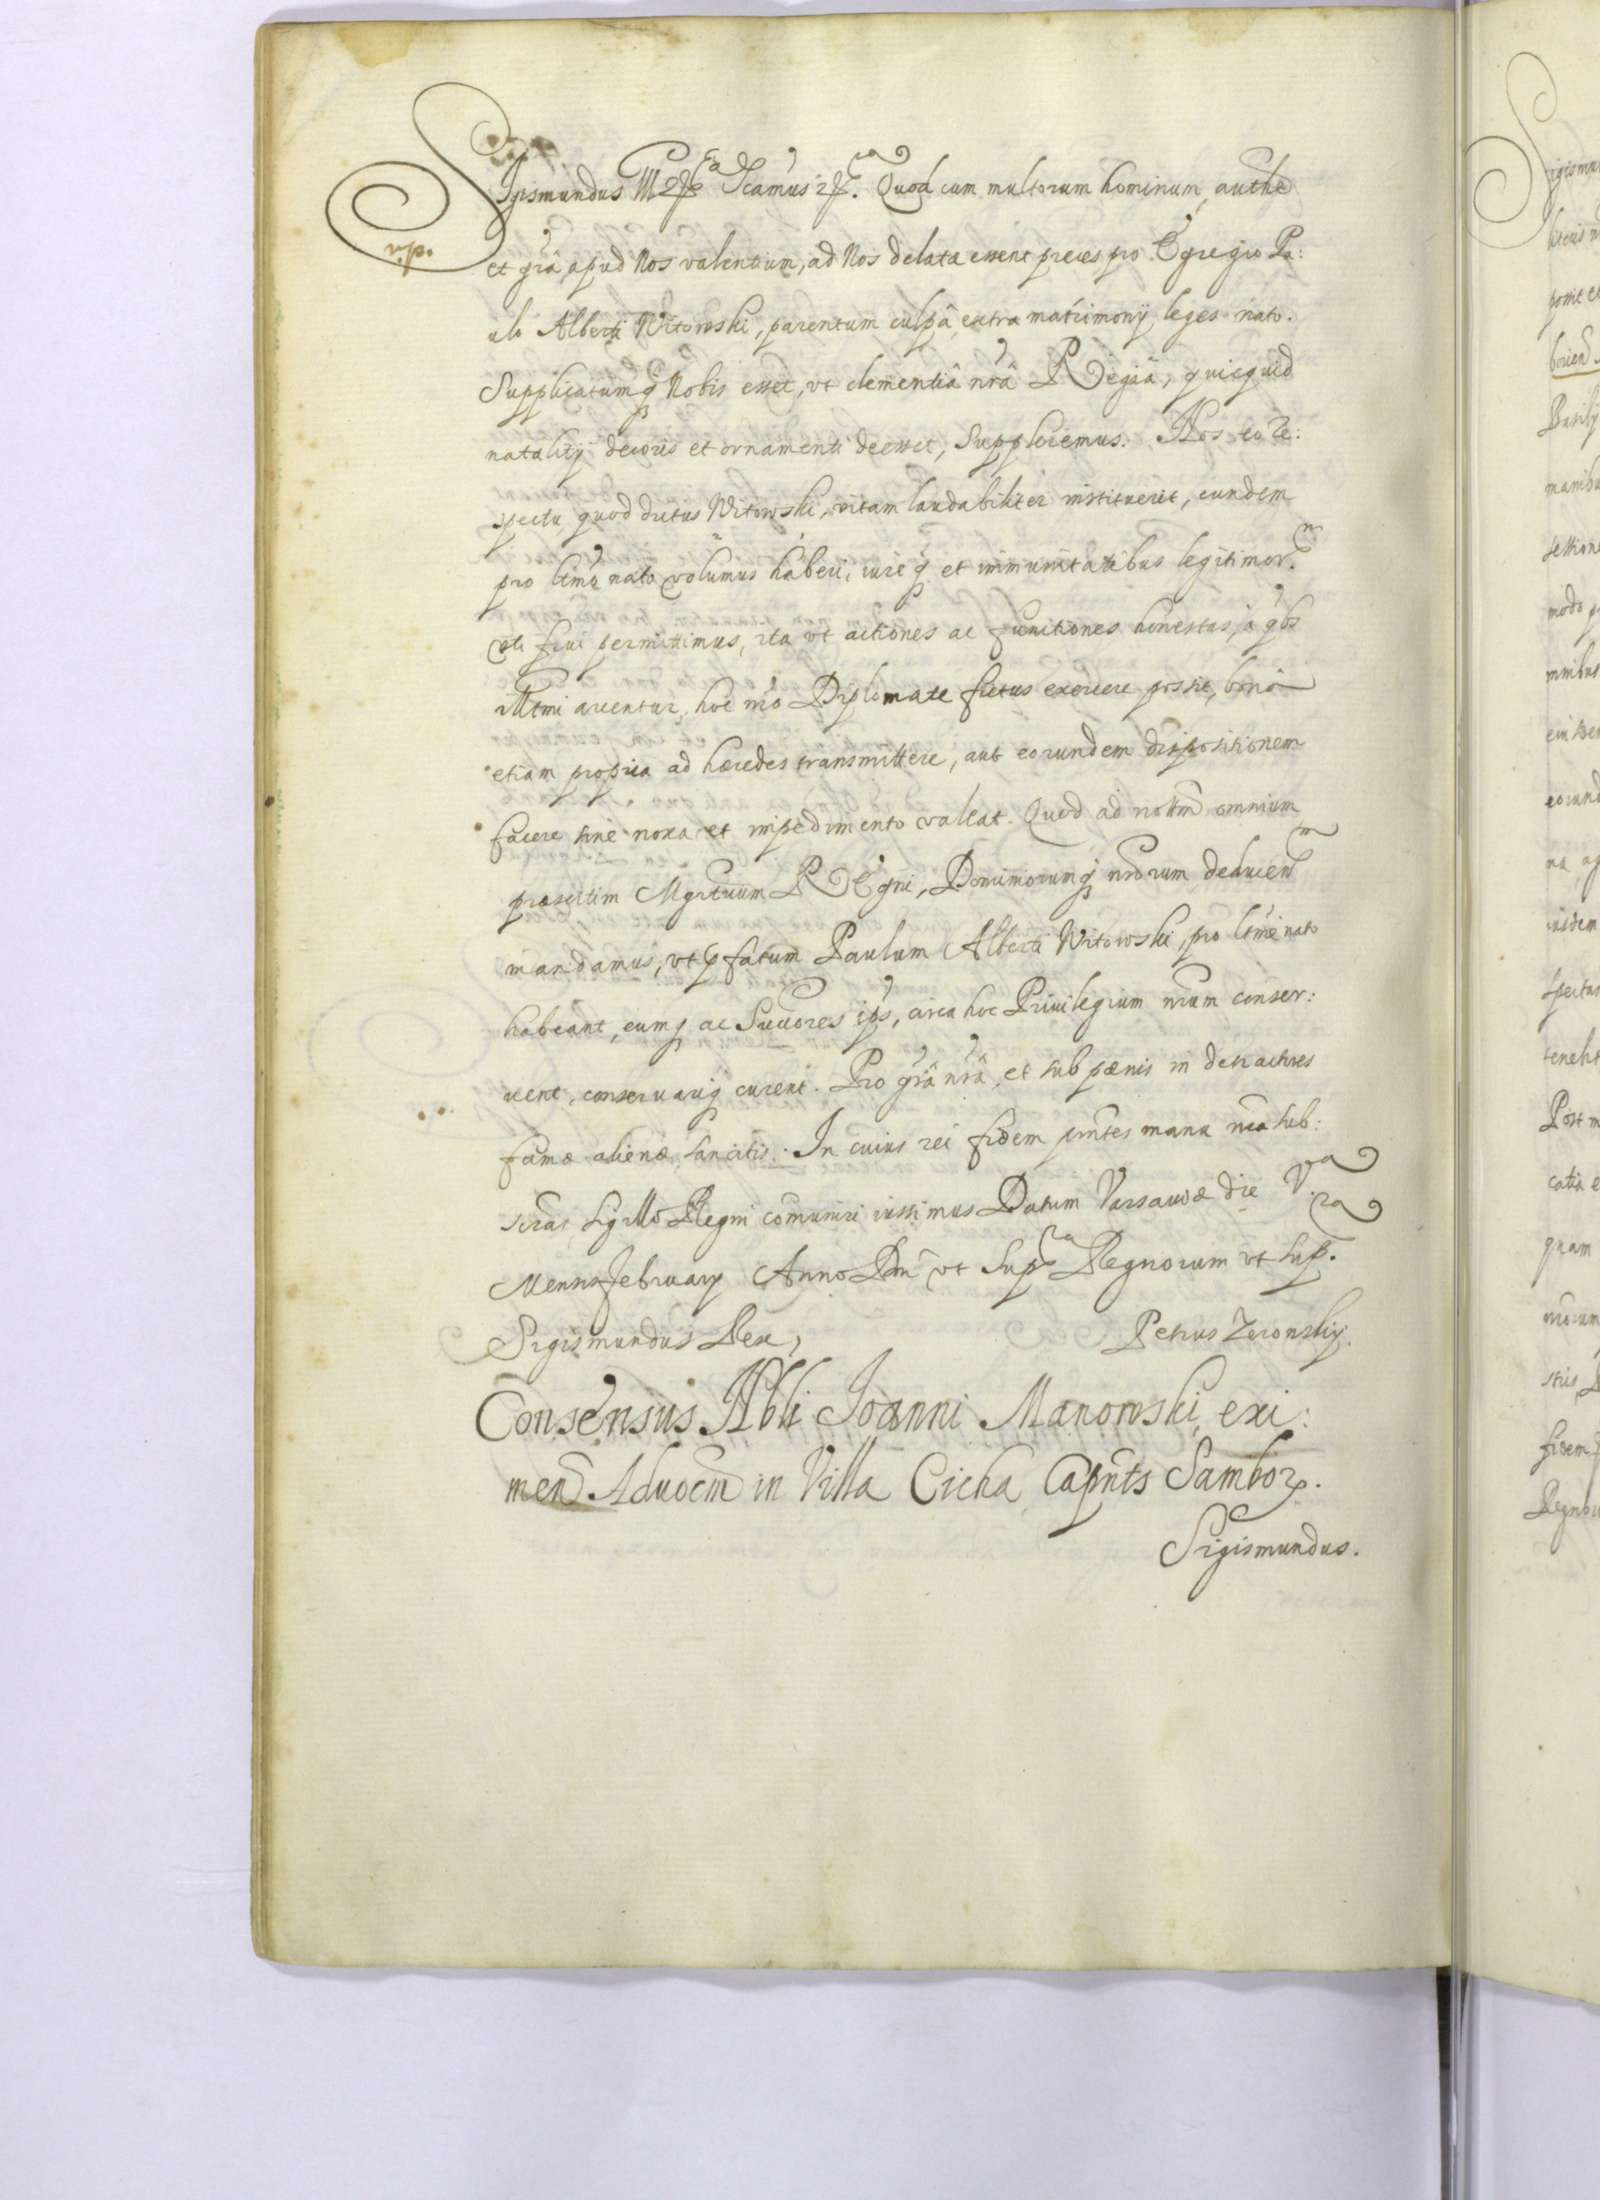 Sigismundus III etc. Scamus etc. Quod cum multorum hominum, authe
v.p.
et grâ apud Nos valentium, ad Nos delatæ essent preces pro Egregio Pa:
ulo Alberti Witowski, parentum culpâ, extra matrimonij leges nato.
Supplicatumq Nobis esset, vt clementiâ nrâ Regiâ, quicquid
natalitij decoris et ornamenti deesset, Suppleremus. Nos eo re:
spectu, quod dictus Witowski, vitam laudabiliter instituerit, eundem
pro ltmè nato volumus haberi, iureq et immunitatibus legitimor.m
vti frui permittimus, ita vt actiones ac functiones honestas, à qbs
illtmi arcentur, hoc nro Diplomate fretus exercere possit, bona
etiam propria ad hæredes transmittere, aut eorundem dispositionem
facere sine noxa et impedimento valeat. Quod ad notm omnium
præsertim Mgrtuum Regni, Dominiorumq nrorum deducen
mandamus, vt pfatum Paulum Alberti Witowski, pro ltmè nato
habeant, eumq ac Succores ips, circa hoc Priuilegium nrum conser:
uent, conseruariq curent. Pro grâ nrâ, et sub pænis in detractores
famæ alienæ sancitis. In cuius rei fidem pntes manu nra sub:
scras sigillo Regni comuniri iussimus Datum Varsauiæ die V.a
Mensis february Anno Dni vt supra Regnorum vt sup.ra
Sigismundus Rex,
Petrus Zeronskij.
Consensus Nbli Joanni Manowski, exi:
men Aduocm in Villa Cicha Capnts Sambor.
Sigismundus.